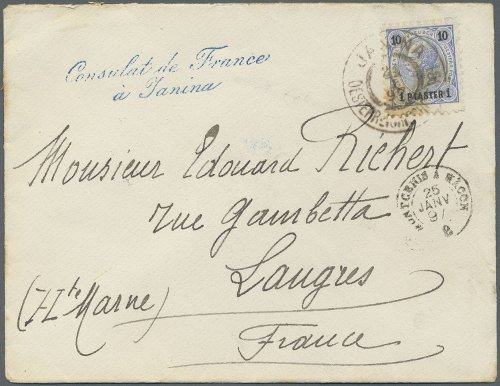 Consulat de France
à Janina
10 10
1 PIASTER 1
JANINA
OESTERREICH
Monsieur Edouard Richert
rue Gambetta
Langres
(Hte Marne)
France
MONTCENIS A MACON
25
JANV
97